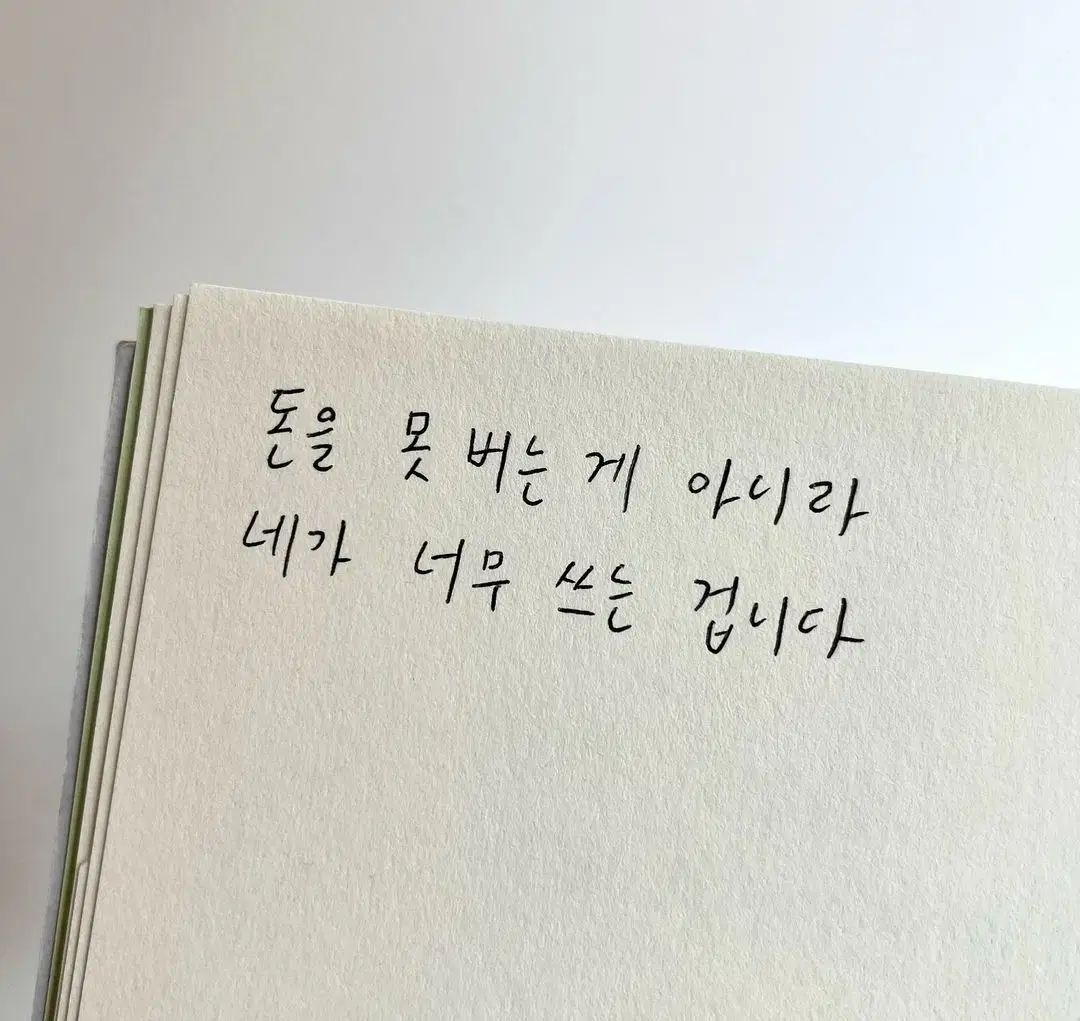 돈을 못 버는 게 아니라
네가 너무 쓰는 겁니다